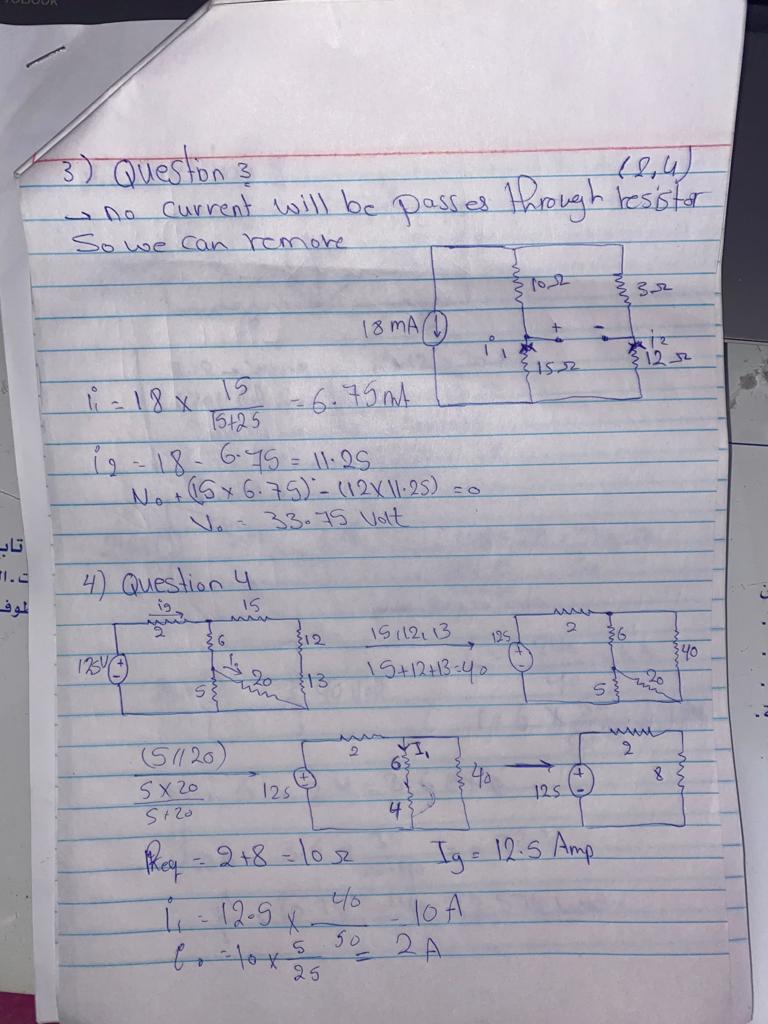 3) Question 3
(2,4)
→ no current will be passes through resistor
So we can remove
10Ω
3Ω
18 mA
+
-
i1
i2
15Ω
12Ω
i1 = 18 × 15/(15+25) = 6.75 mA
i2 = 18 - 6.75 = 11.25
Vo + (15 × 6.75) - (12×11.25) = 0
Vo = 33.75 Volt
4) Question 4
ig
15
2
6
12
125V
+
-
5
20
13
15,12,13
15+12+13=40
125
+
-
2
6
40
5
20
(5//20)
5×20
5+20
125
+
2
I1
6
4
40
125
+
-
2
8
Req = 2+8 = 10 Ω
Ig = 12.5 Amp
i1 = 12.5 × 40/50 = 10 A
io = 10 × 5/25 = 2 A